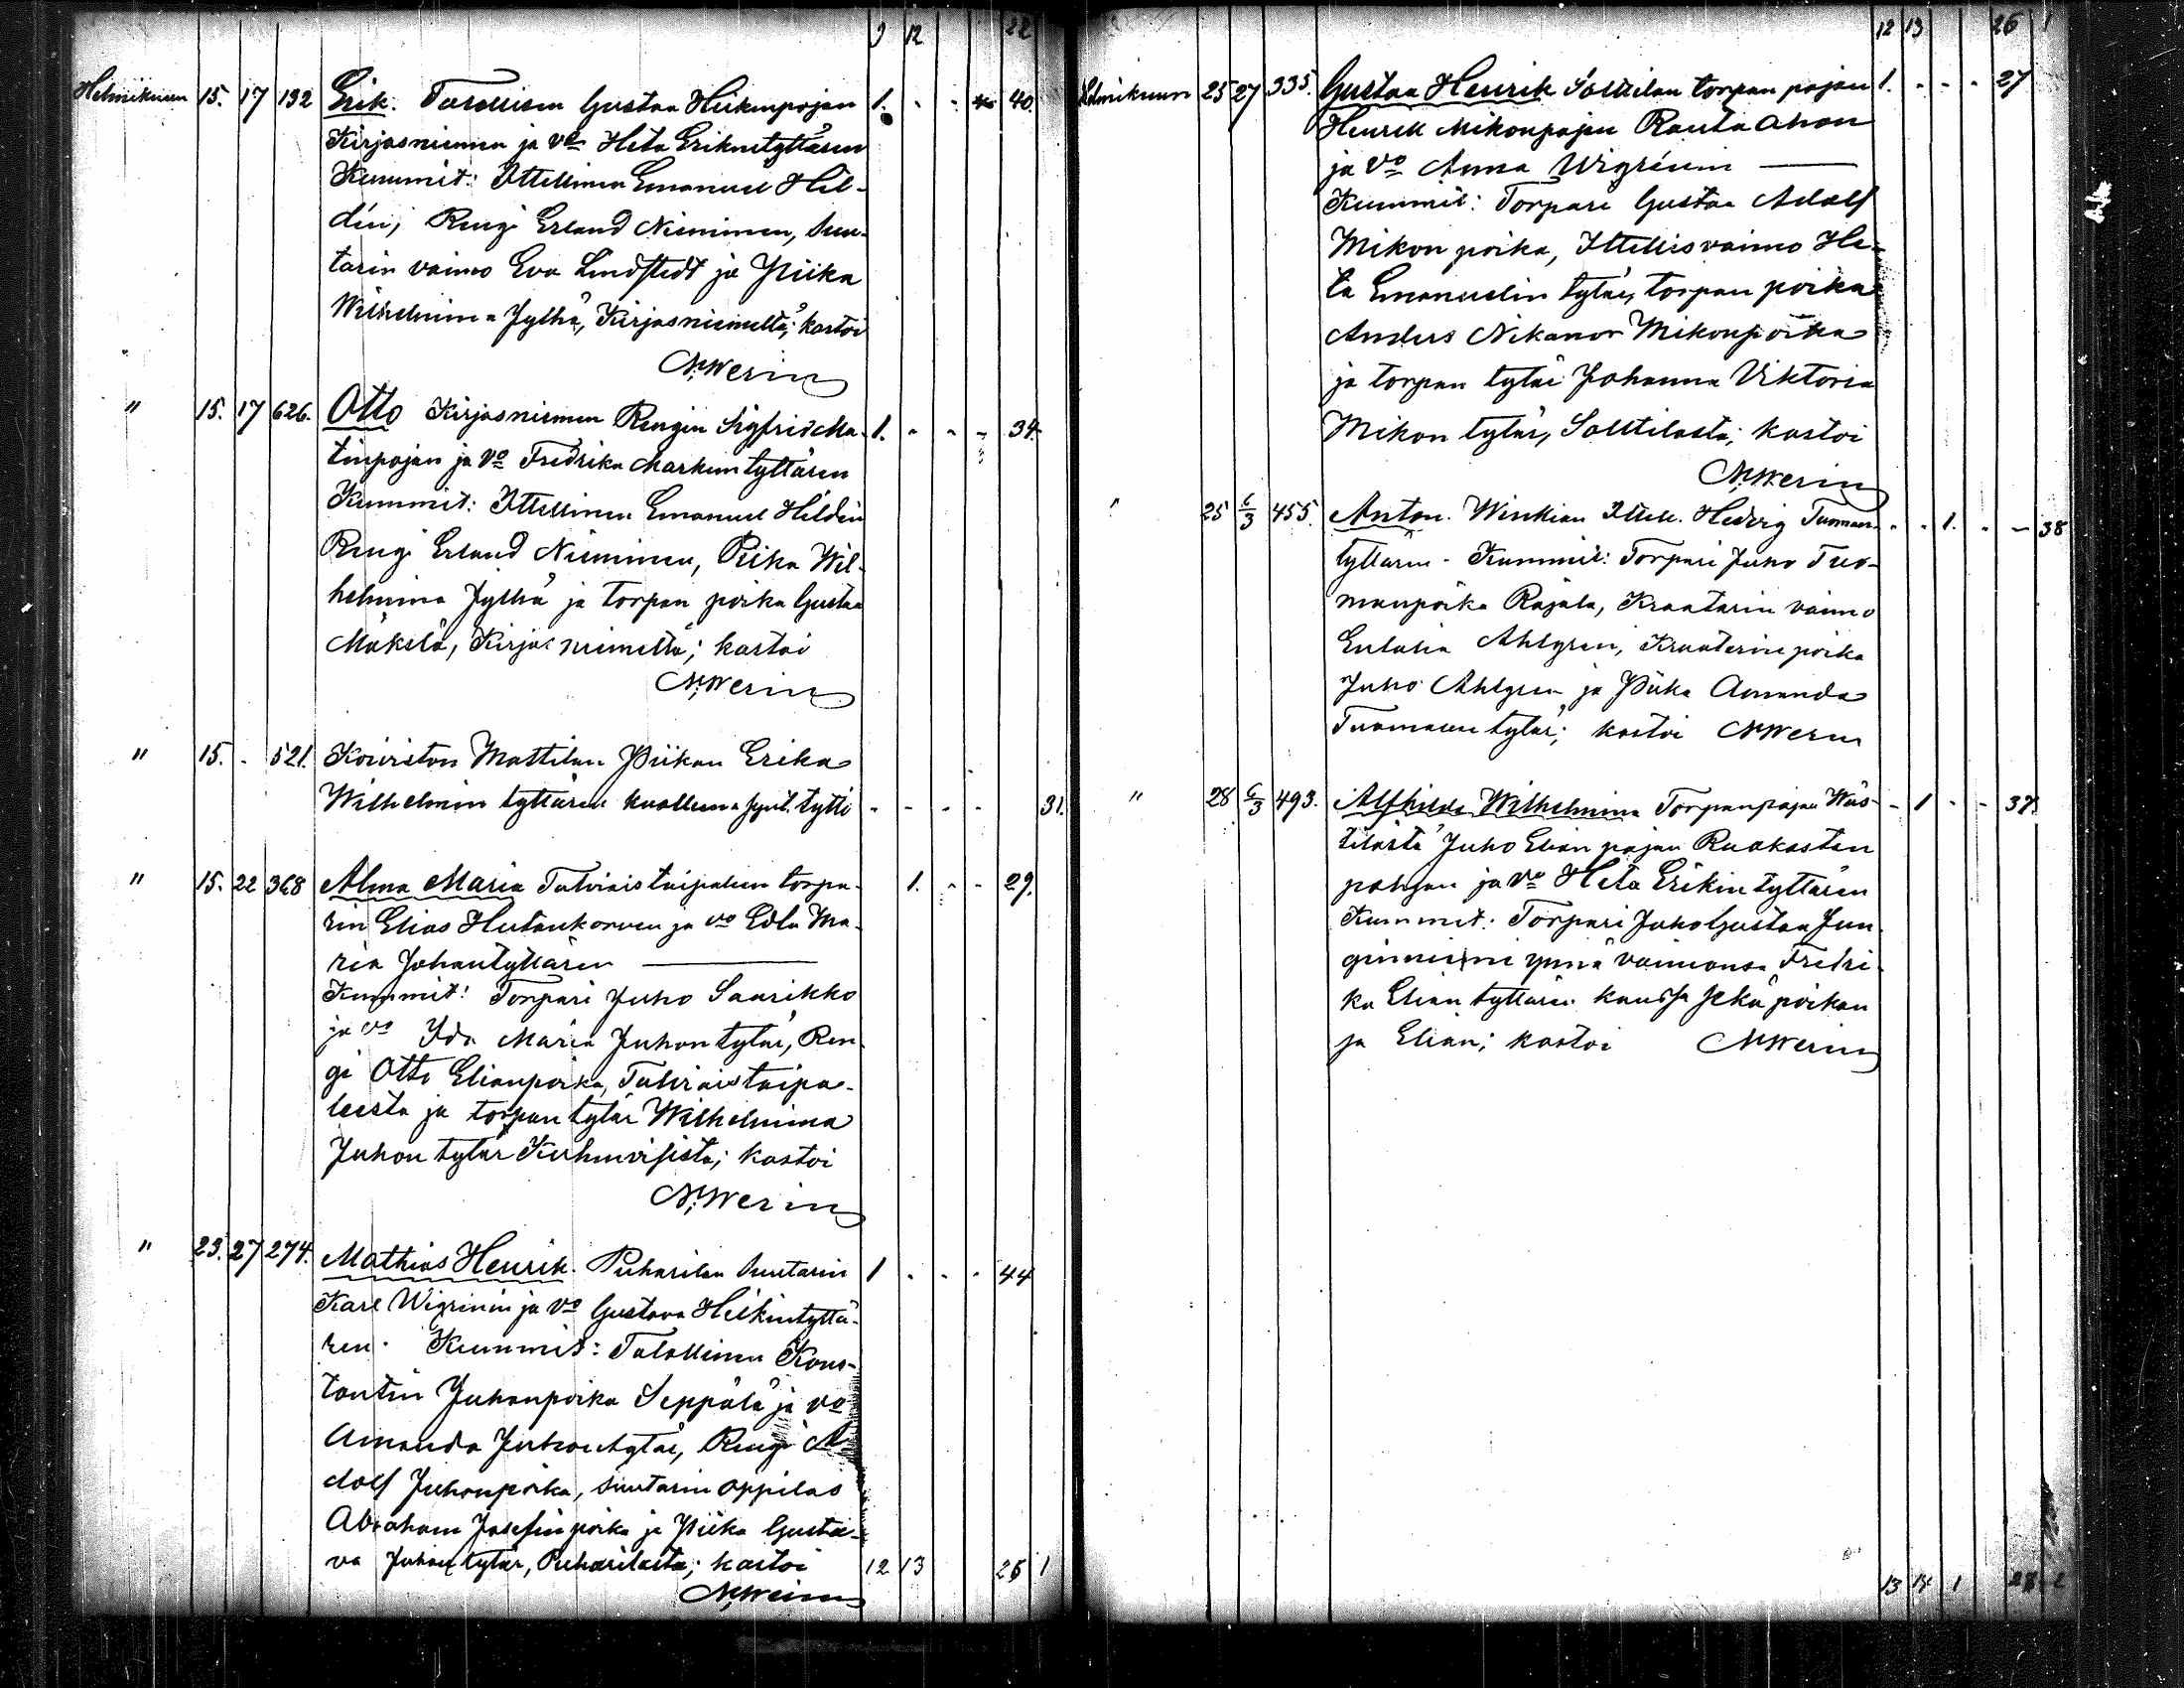 9 12 22
Helmikuun 15. 17 132 Erik. Talollisen Gustaa Heikinpojan 1. - - 40.
Kirjasniemen ja vo Heta Erikintyttären
Kummit: Ittellinen Emanuel Hil-
dén, Rengi Erland Nieminen, Suu-
tarin vaimo Eva Lindstedt ja Piika
Wilhelmina Jylhä, Kirjasniemeltä; kastoi
N. Werin
" 15. 17 626. Otto Kirjasniemen Rengin Sigfrid Ma- 1. - - - 34.
tinpojan ja vo Fredrika Markuntyttären
Kummit: Ittellinen Emanuel Hildén
Rengi Erland Nieminen, Piika Wil-
helmina Jylhä ja torpan poika Gustaa
Mäkelä, Kirjasniemeltä; kastoi
N. Werin
" 15. - 521. Koiviston Mattilan Piikan Erika
Wilhelmin tyttären kuollena synt. tyttö - - - - 31.
" 15. 22 368 Alma Maria Talviaistaipaleen torpa- 1. - - 29.
rin Elias Hietankorven ja vo Edla Ma-
ria Johantyttären
Kummit: Torpari Juho Saarikko
ja vo Ida Maria Juhon tytär, Ren-
gi Otto Elianpoika, Talviaistaipa-
leesta ja torpan tytär Wilhelmina
Juhon tytär; kastoi
N. Werin
" 23. 27 274. Mathias Henrik. Puharilan Suutarin 1 - - - 44
Karl Wigrénin ja vo Gustava Heikintyttä-
ren. Kummit: Talollinen Kons-
tantin Juhanpoika Seppälä ja vo
Amanda Juhontytär, Rengi A-
dolf Juhonpoika, suutarin oppilas
Abraham Josefin poika ja Piika Gusta-
va Juhon tytär, Puharilasta; kastoi 12 13 26 1
N. Werin
12 13 26 1
Helmikuun 25 27 335. Gustaa Henrik Soltilan torpan pojan 1. - - - 27
Henrik Mikonpojan Rauta ahon
ja vo Anna Wigrénin
Kummit: Torpari Gustaa Adolf
Mikon poika, Ittellis vaimo He-
ta Emanuelin tytär, torpan poika
Anders Nikanor Mikonpoika
ja torpan tytär Johanna Viktoria
Mikon tytär, Soltilasta; kastoi
N. Werin
" 25 6/3 455. Anton. Ittell. Hedvig Tuomaan- - - 1. - - 38
tyttären - Kummit: Torpari Juho Tuo-
manpoika Rajala, Kraatarin vaimo
Eulalia Ahlgren, Kraatarin poika
Juho Ahlgren ja Piika Amanda
Tuomaan tytär; kastoi N. Werin
" 28 6/3 493. Alfhilda Wilhelmina Torpanpojan Wäs- - 1 - - 37.
tilästä Juho Elian pojan Ruokastan
pohjan ja vo Heta Erikin tyttären
Kummit: Torpari Juho Gustaa Jun-
ginniemi ynnä vaimonsa Fredri-
ka Elian tyttären kanssa sekä poikan
ja Elian; kastoi N. Werin
13 14 1 27 2